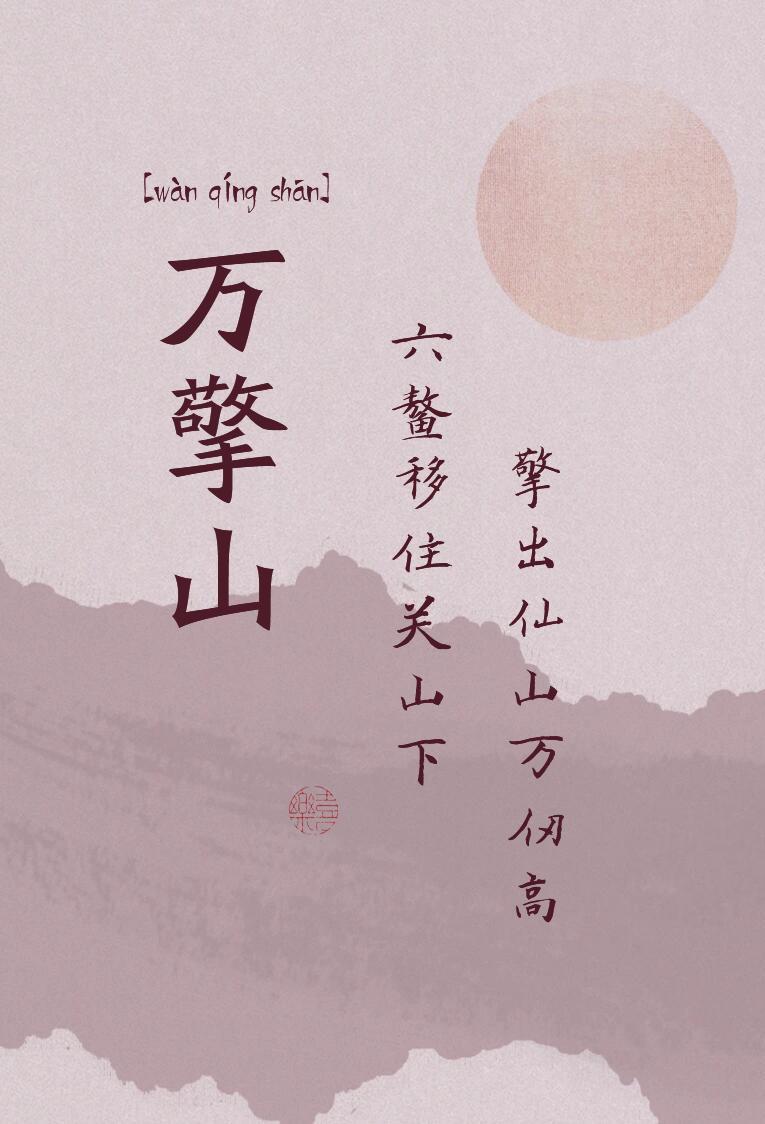 [wàn qíng shān]
万擎山
六鳌移住关山下
擎出仙山万仞高
樂